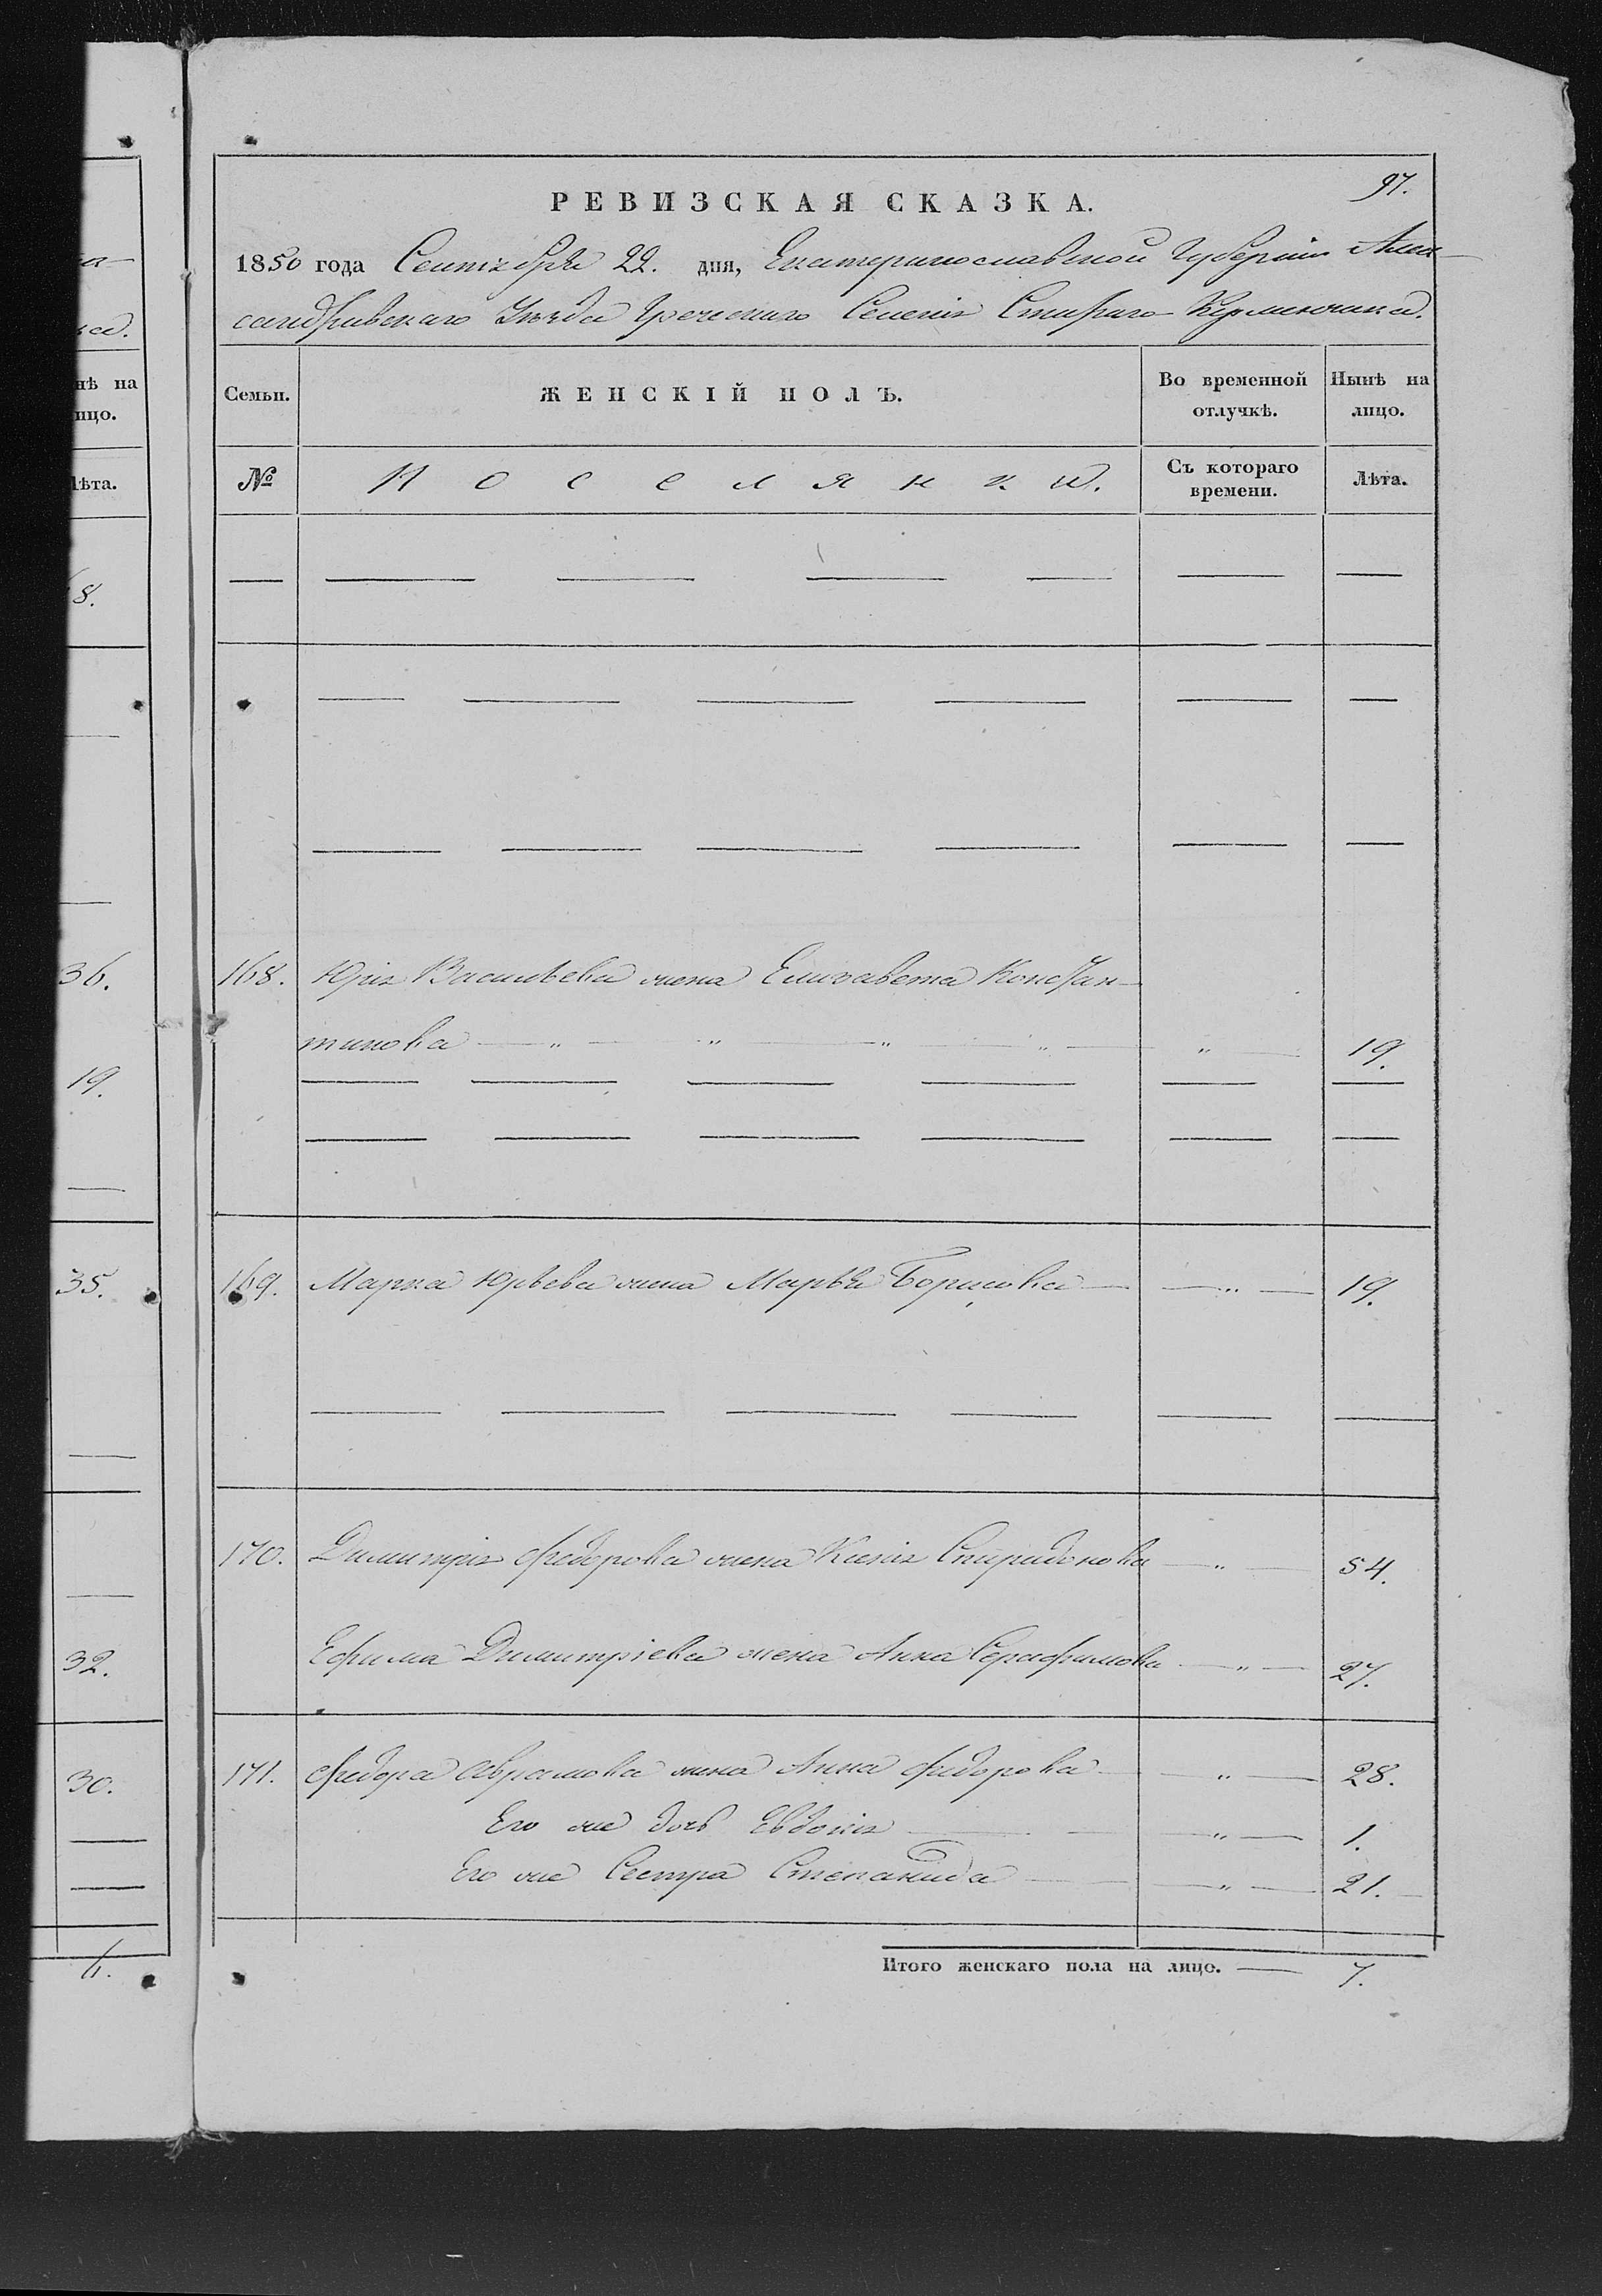 на
ка.
нѣ на
ицо.
лѣта.
8.
36.
19.
35.
32.
30.
6.
97.
РЕВИЗСКАЯ СКАЗКА.
1850 года Сентября 22. дня, Екатеринославской Губерніи Алек-
сандровскаго Уѣзда Греческаго Селенія Стараго Керменчика.
Семьи. ЖЕНСКІЙ ПОЛЪ. Во временной отлучкѣ. Нынѣ на лицо.
№ Поселянки. Съ котораго времени. Лѣта.
168. Юрія Васильева жена Елизавета Констан-
тинова — „ — „ — „ — „ — „ — 19.
169. Марка Юрьева жена Марья Борисова — „ — 19.
170. Димитрія Федорова жена Ксенія Спиридонова — „ — 54.
Ефима Димитріева жена Анна Серафимова — „ — 27.
171. Федора Аврамова жена Анна Федорова — „ — 28.
Его же дочь Евдокія — „ — 1.
Его же Сестра Степанида — „ — 21.
Итого женскаго пола на лицо. — 7.